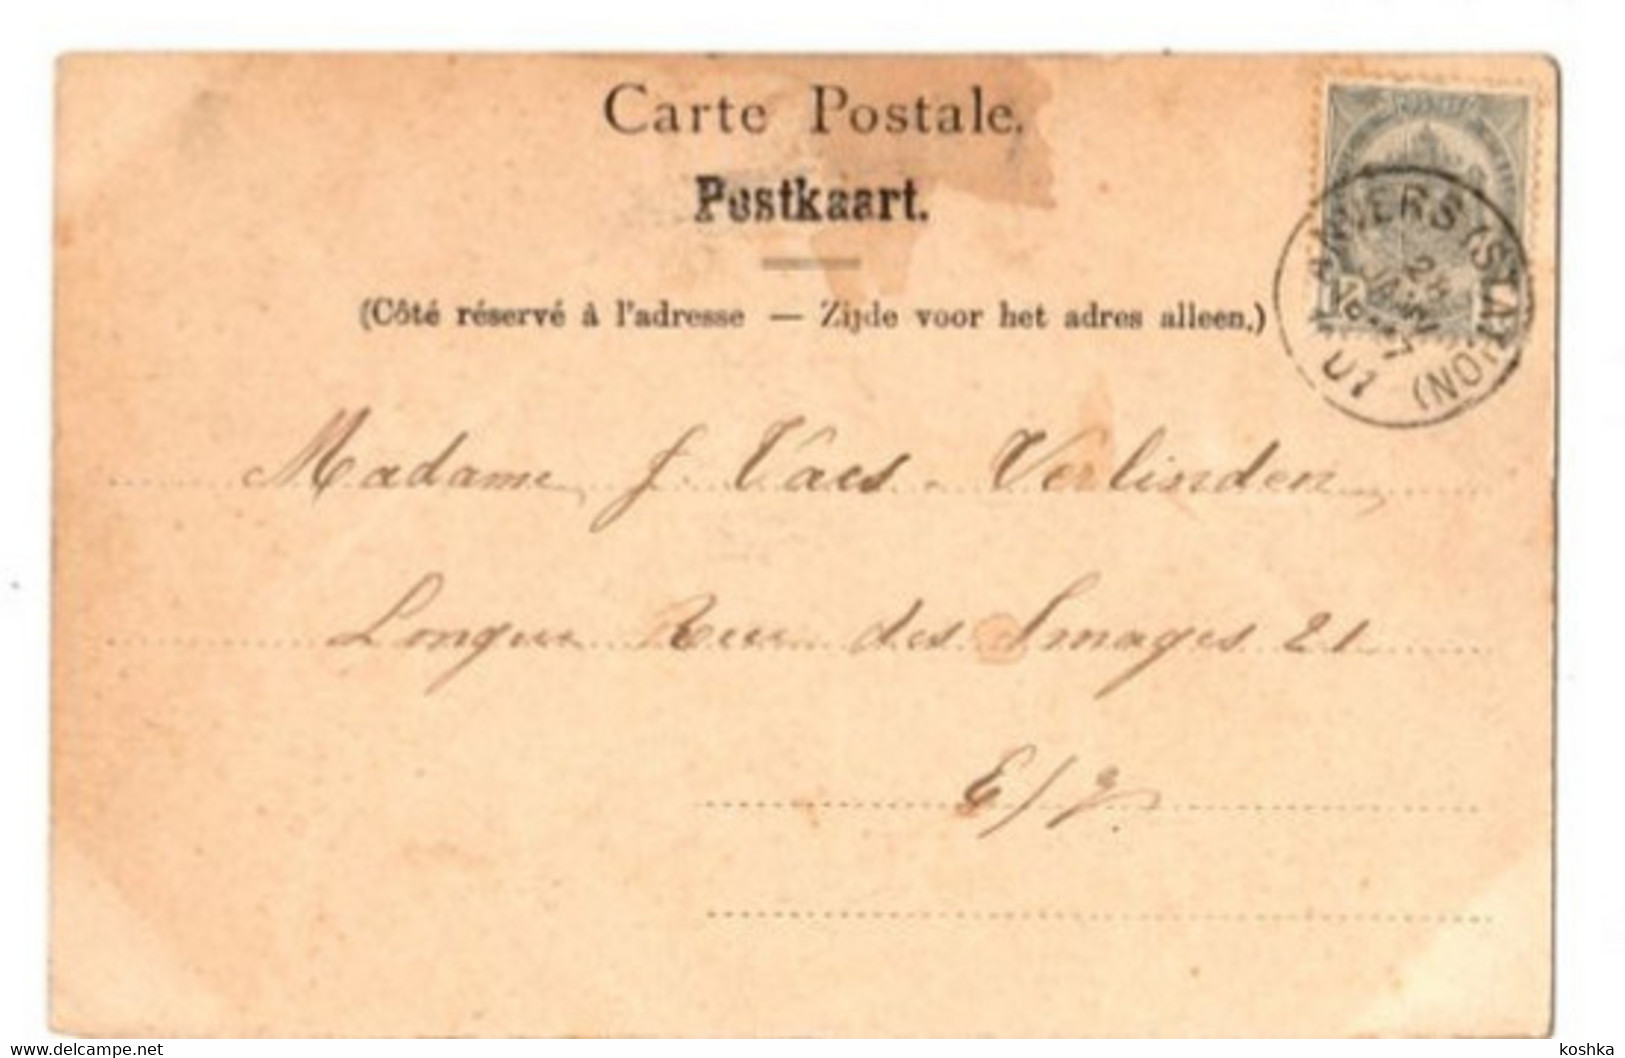 Carte Postale.
Postkaart.
(Côté réservé à l'adresse — Zijde voor het adres alleen.)
ANVERS (STATION)
JANV
01
Madame J. Vaes-Verlinden
Longue Rue des Images 21
E/V.
www.delcampe.net
koshka